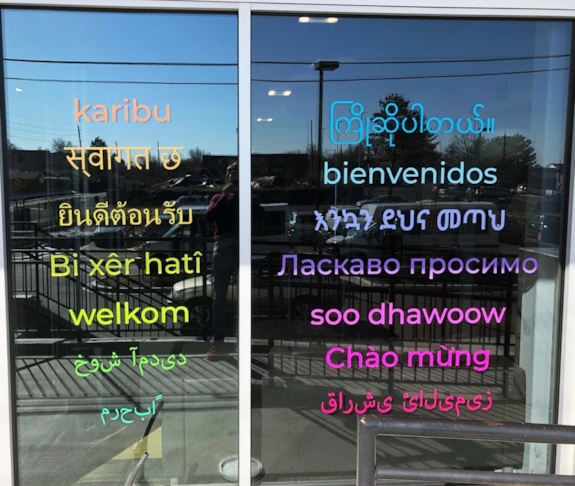 karibu
स्वागत छ
ยินดีต้อนรับ
Bi xêr hatî
welkom
دیدمآ شوخ
اًبحرم
ကြိုဆိုပါတယ်။
bienvenidos
እንኳን ደህና መጣህ
Ласкаво просимо
soo dhawoow
Chào mừng
زىمىلائ ىشراق